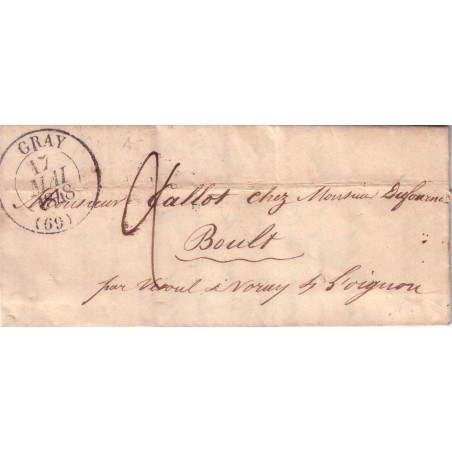 GRAY
17
MAI
1848
(69)
2
Monsieur Callot chez Monsieur Dufourne
Boult
par Vesoul à Voray s/ L'oignon